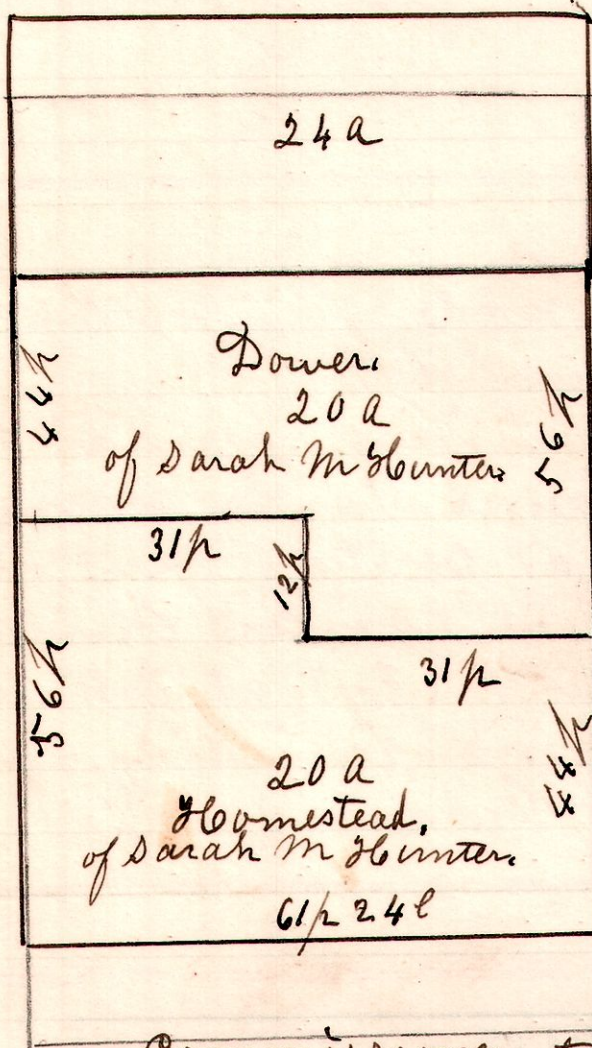 24 a
Dower.
20 a
of Sarah M Hunter.
44 p
56 p
31 p
12 p
31 p
56 p
44 p
20 a
Homestead.
of Sarah M Hunter.
61 p 24 l